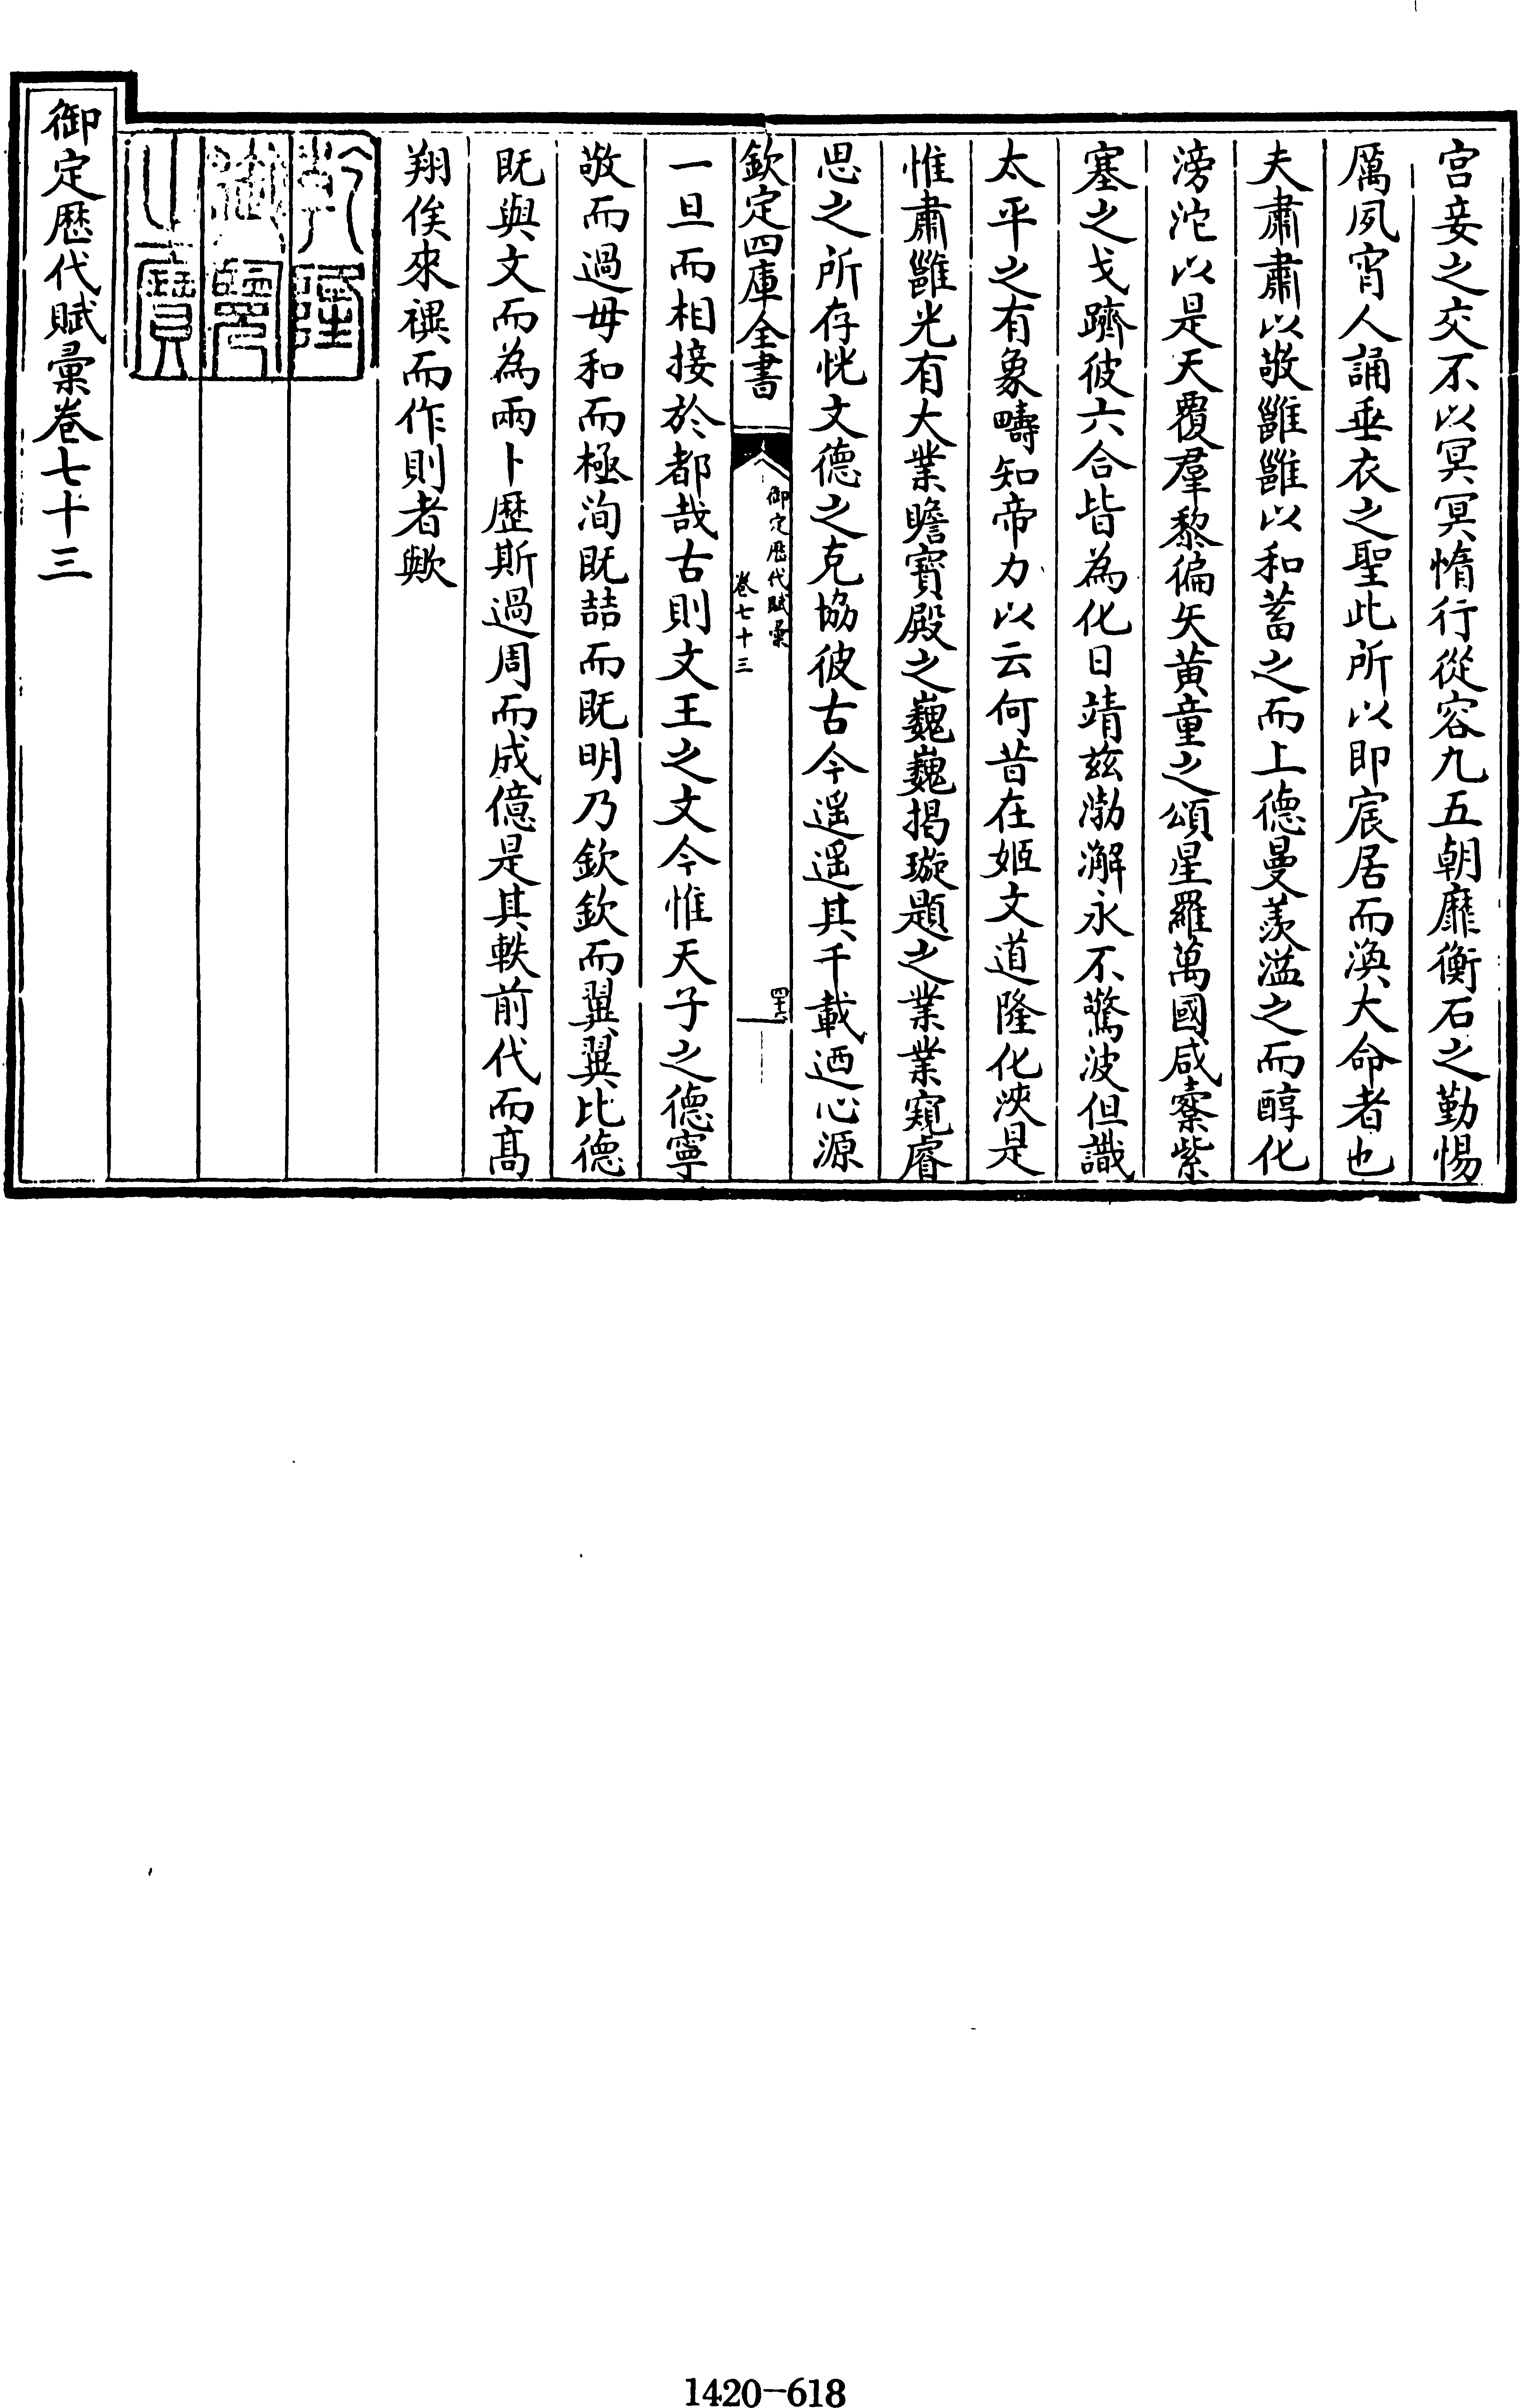 宫妾之交不以冥冥惰行從容九五朝靡衡石之勤惕
厲夙宵人誦垂衣之聖此所以即宸居而渙大命者也
夫肅肅以敬雝雝以和蓄之而上德曼羨溢之而醇化
滂沱以是天覆羣黎徧矢黄童之頌星羅萬國咸櫜紫
塞之戈躋彼六合皆為化日靖兹渤澥永不驚波但識
太平之有象疇知帝力以云何昔在姬文道隆化浹是
惟肅雝光有大業瞻寳殿之巍巍揭璇題之業業窺睿
思之所存恍文德之克協彼古今遥遥其千載迺心源
欽定四庫全書
御定歴代賦彙
卷七十三
一旦而相接於都哉古則文王之文今惟天子之德寧
敬而過毋和而極洵既喆而既明乃欽欽而翼翼比德
既與文而為兩卜歴斯過周而成億是其軼前代而髙
翔俟來禩而作則者歟
乾隆
御覽
之寶
御定歴代賦彙卷七十三
1420-618